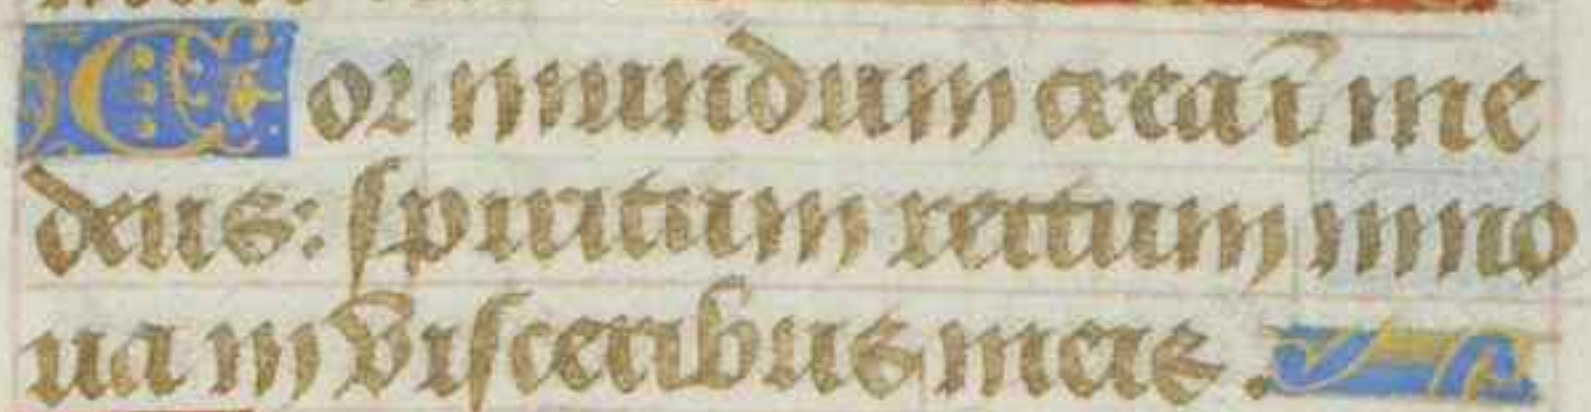 Cor mundum crea ĩ me
deus: spiritum rectum inno
ua in visceribus meis.